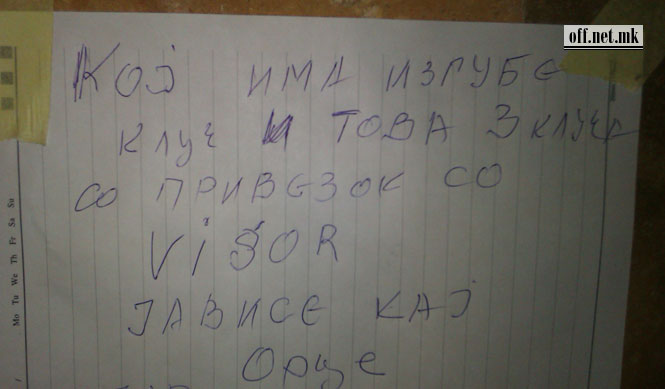 off.net.mk
КОЈ ИМА ИЗГУБЕ
КЛУЧ И ТОВА 3 КЛУЧА
СО ПРИВЕЗОК СО
VISOR
ЈАВИСЕ КАЈ
Орце
Mo Tu We Th Fr Sa Su